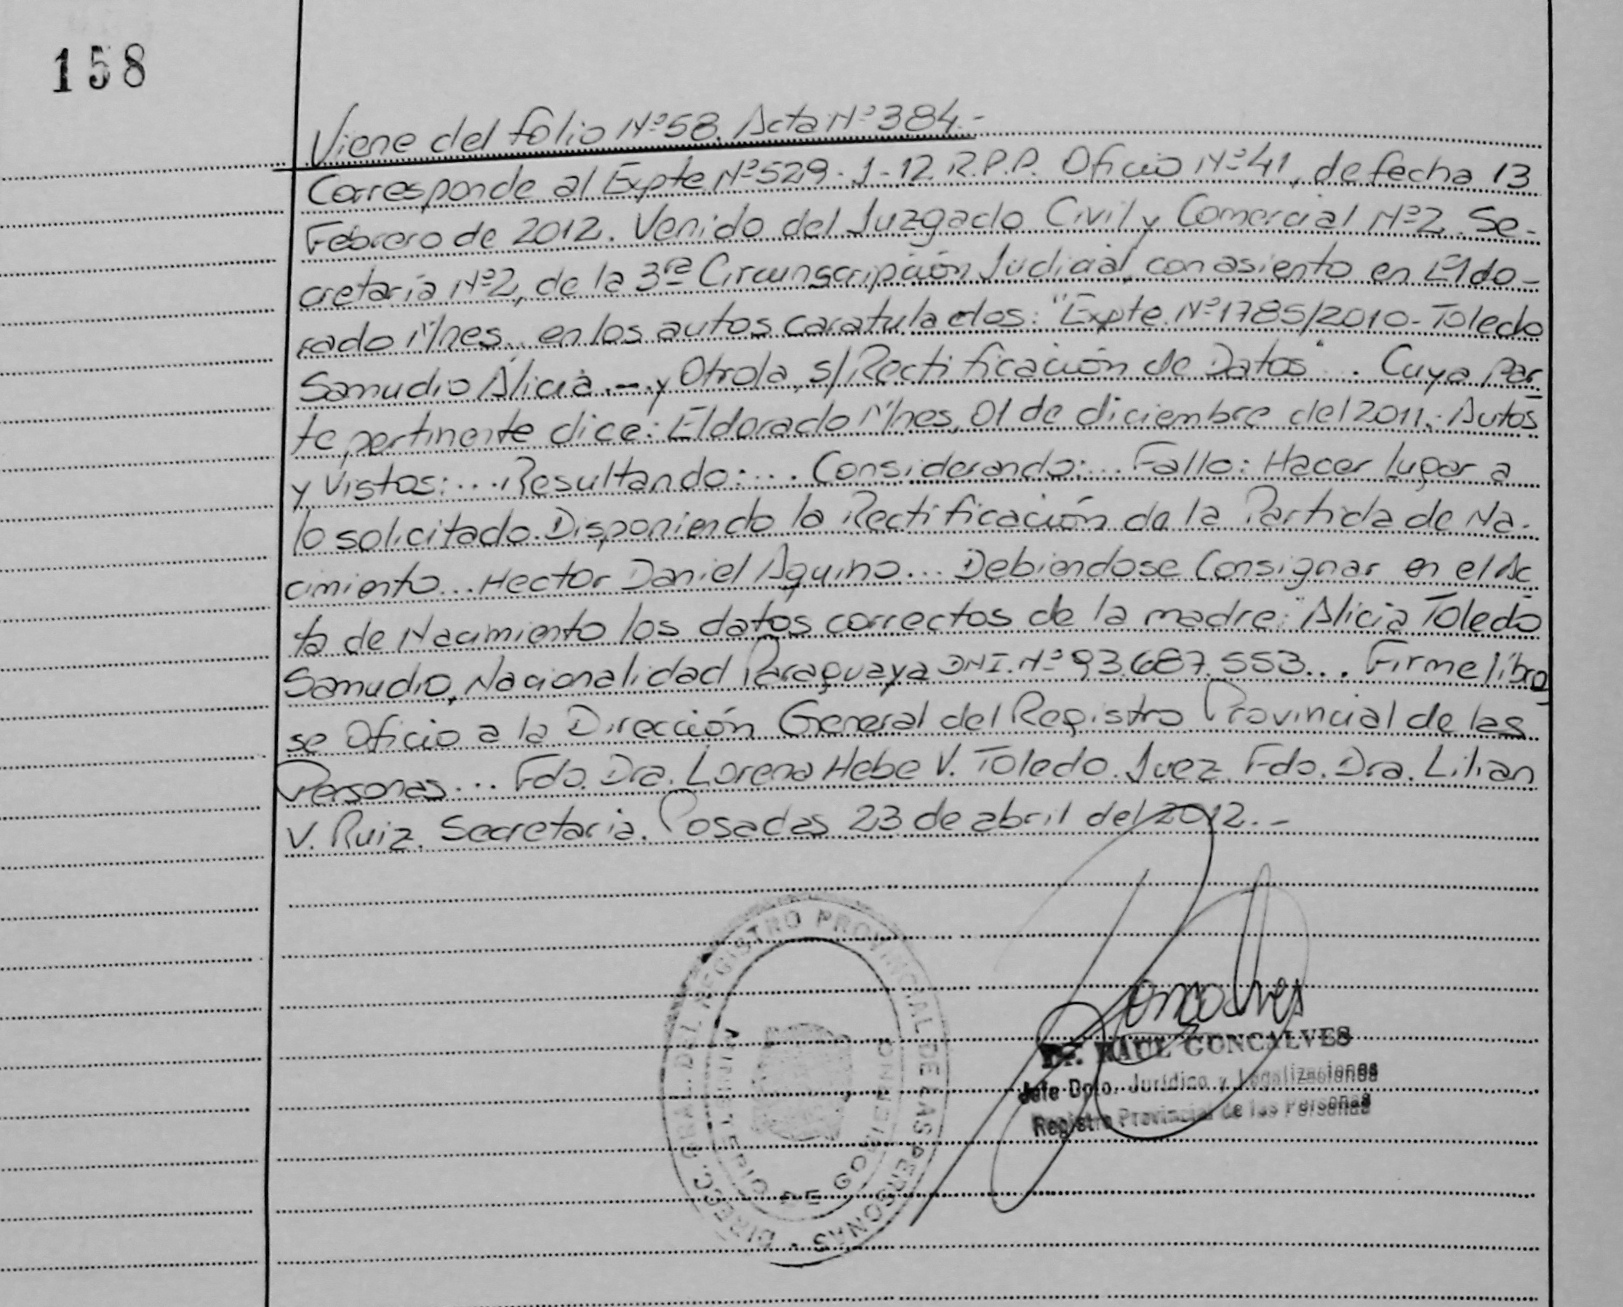 158
Viene del folio Nº58. Acta Nº384.-
Corresponde al Expte Nº529-1-12 R.P.P. Oficio Nº41, de fecha 13
Febrero de 2012. Venido del Juzgado Civil y Comercial Nº2. Se-
cretaría Nº2, de la 3ra Circunscripción Judicial, con asiento en Eldo-
rado Mnes. en los autos caratulados: "Expte. Nº1785/2010- Toledo
Samudio Alicia.- y Otro/a, s/Rectificación de Datos". Cuya par-
te pertinente dice: Eldorado Mnes, 01 de diciembre del 2011.: Autos
y Vistos:... Resultando:... Considerando:... Fallo: Hacer lugar a
lo solicitado. Disponiendo la Rectificación de la Partida de Na-
cimiento... Hector Daniel Aquino... Debiendose Consignar en el Ac
ta de Nacimiento los datos correctos de la madre: "Alicia Toledo
Samudio, Nacionalidad Paraguaya DNI.Nº93.687.553... Firme libre
se Oficio a la Dirección General del Registro Provincial de las
Personas... Fdo. Dra. Lorena Hebe V. Toledo. Juez. Fdo. Dra. Lilian
V. Ruiz. Secretaria. Posadas 23 de abril del 2012.-
DIRECC. GRAL. DEL REGISTRO PROVINCIAL DE LAS PERSONAS
MINISTERIO DE GOBIERNO
Goncalves
Dr. RAUL GONCALVES
Jefe Dpto. Jurídico y Legalizaciones
Registro Provincial de las Personas